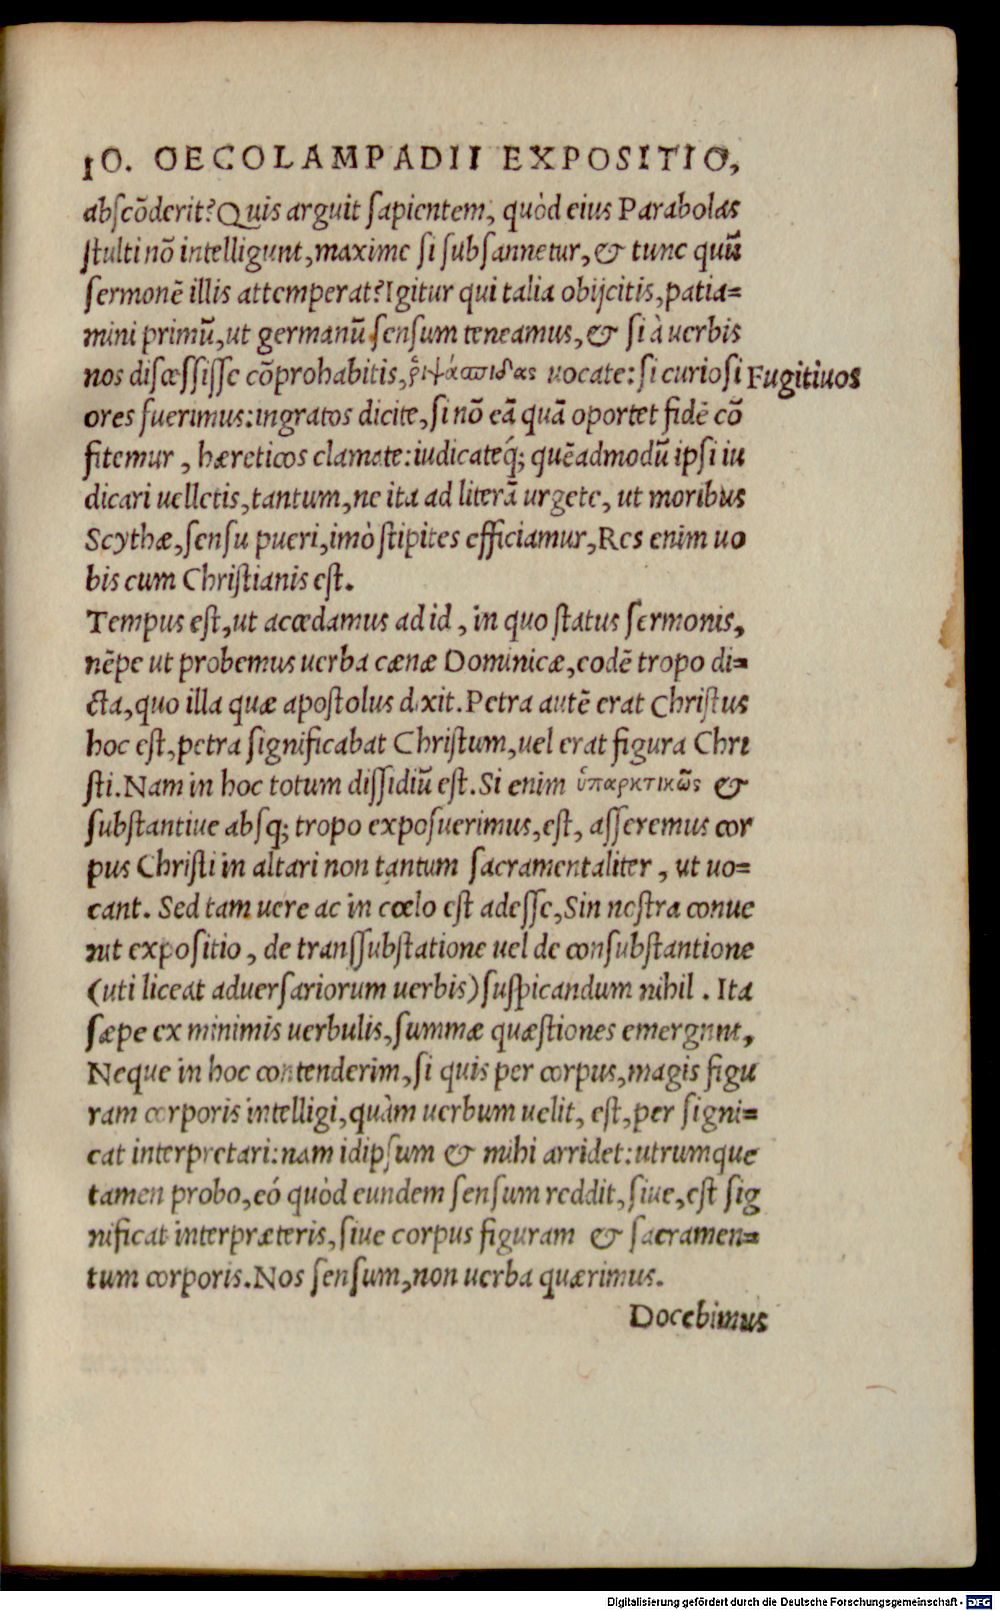 IO. OECOLAMPADII EXPOSITIO,
abscõderit? Quis arguit sapientem, quòd eius Parabolas
stulti nõ intelligunt, maxime si subsannetur, & tunc quũ
sermonẽ illis attemperat? Igitur qui talia obijcitis, patia=
mini primũ, ut germanũ sensum teneamus, & si à uerbis
nos discessisse cõprohabitis, ῥιψάσπιδας uocate: si curiosi Fugitiuos
ores fuerimus: ingratos dicite, si nõ eã quã oportet fidẽ cõ
fitemur, hæreticos clamate: iudicateq́; quẽadmodũ ipsi iu
dicari uelletis, tantum, ne ita ad literã urgete, ut moribus
Scythæ, sensu pueri, imò stipites efficiamur, Res enim uo
bis cum Christianis est.
Tempus est, ut accedamus ad id, in quo status sermonis,
nẽpe ut probemus uerba cænæ Dominicæ, eodẽ tropo di=
cta, quo illa quæ apostolus dixit. Petra autẽ erat Christus
hoc est, petra significabat Christum, uel erat figura Chri
sti. Nam in hoc totum dissidiũ est. Si enim ὑπαρκτικῶς &
substantiue absq; tropo exposuerimus, est, asseremus cor
pus Christi in altari non tantum sacramentaliter, ut uo=
cant. Sed tam uere ac in cœlo est adesse, Sin nostra conue
nit expositio, de transsubstatione uel de consubstantione
(uti liceat aduersariorum uerbis) suspicandum nihil. Ita
sæpe ex minimis uerbulis, summæ quæstiones emergunt,
Neque in hoc contenderim, si quis per corpus, magis figu
ram corporis intelligi, quàm uerbum uelit, est, per signi=
cat interpretari: nam idipsum & mihi arridet: utrumque
tamen probo, eó quòd eundem sensum reddit, siue, est sig
nificat interpræteris, siue corpus figuram & sacramen=
tum corporis. Nos sensum, non uerba quærimus.
Docebimus
Digitalisierung gefördert durch die Deutsche Forschungsgemeinschaft - DFG